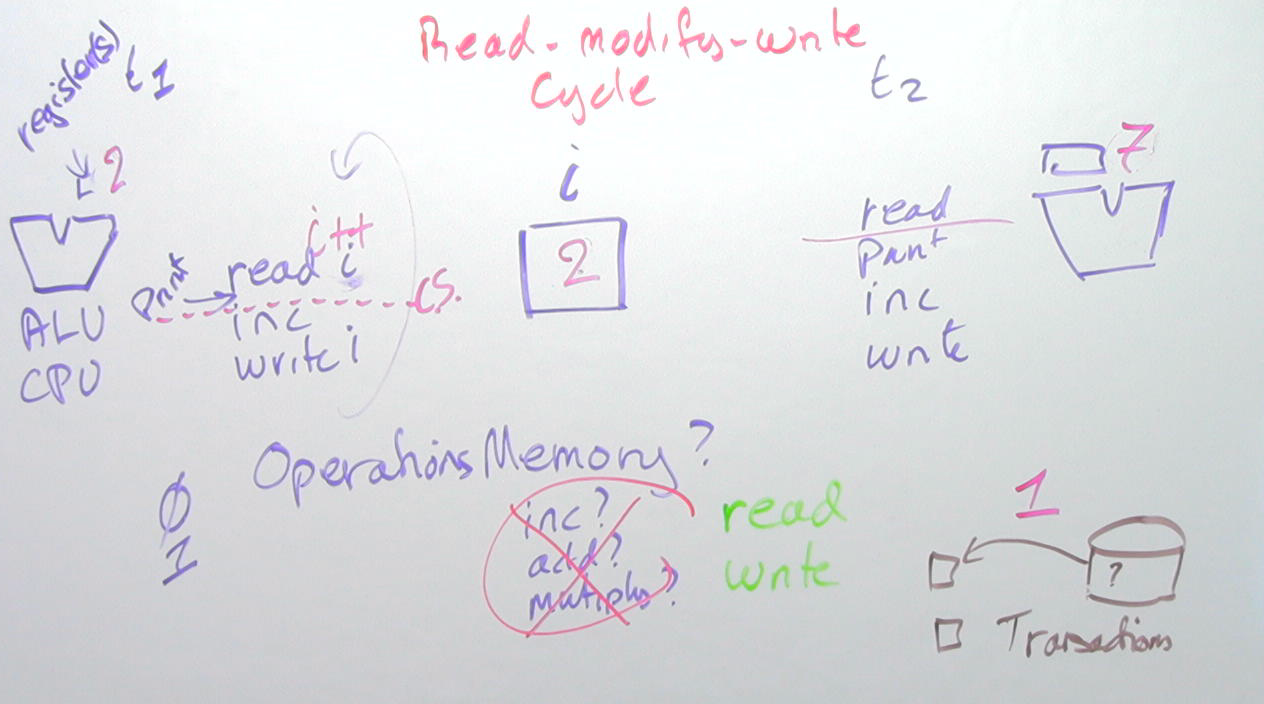 Read-modify-write
Cycle
register(s)
t1
t2
2
7
i
i++
read i
2
print
C.S.
inc
write i
ALU
CPU
read
print
inc
write
Operations Memory?
0
1
inc?
add?
multiply?
read
write
1
?
Transactions